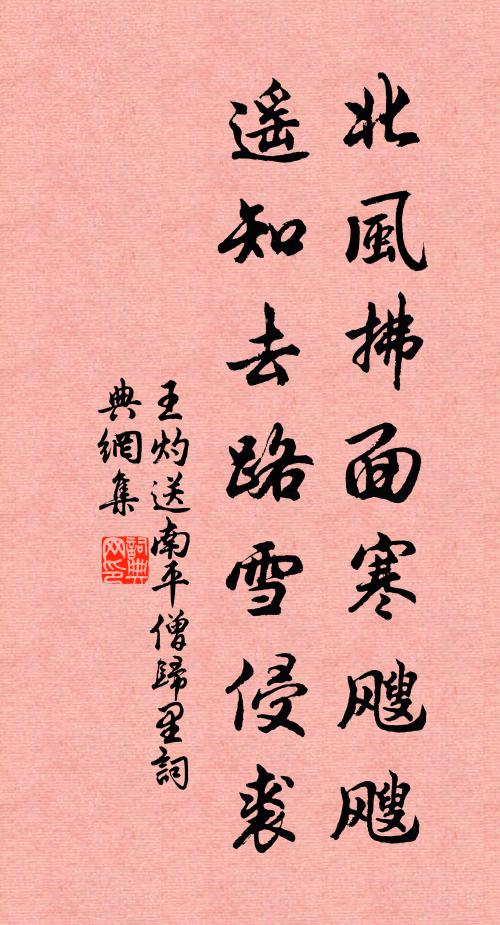 北風拂面寒颼颼
遥知去路雪侵裘
王灼送南平僧歸里詞
典網集
詞典网印